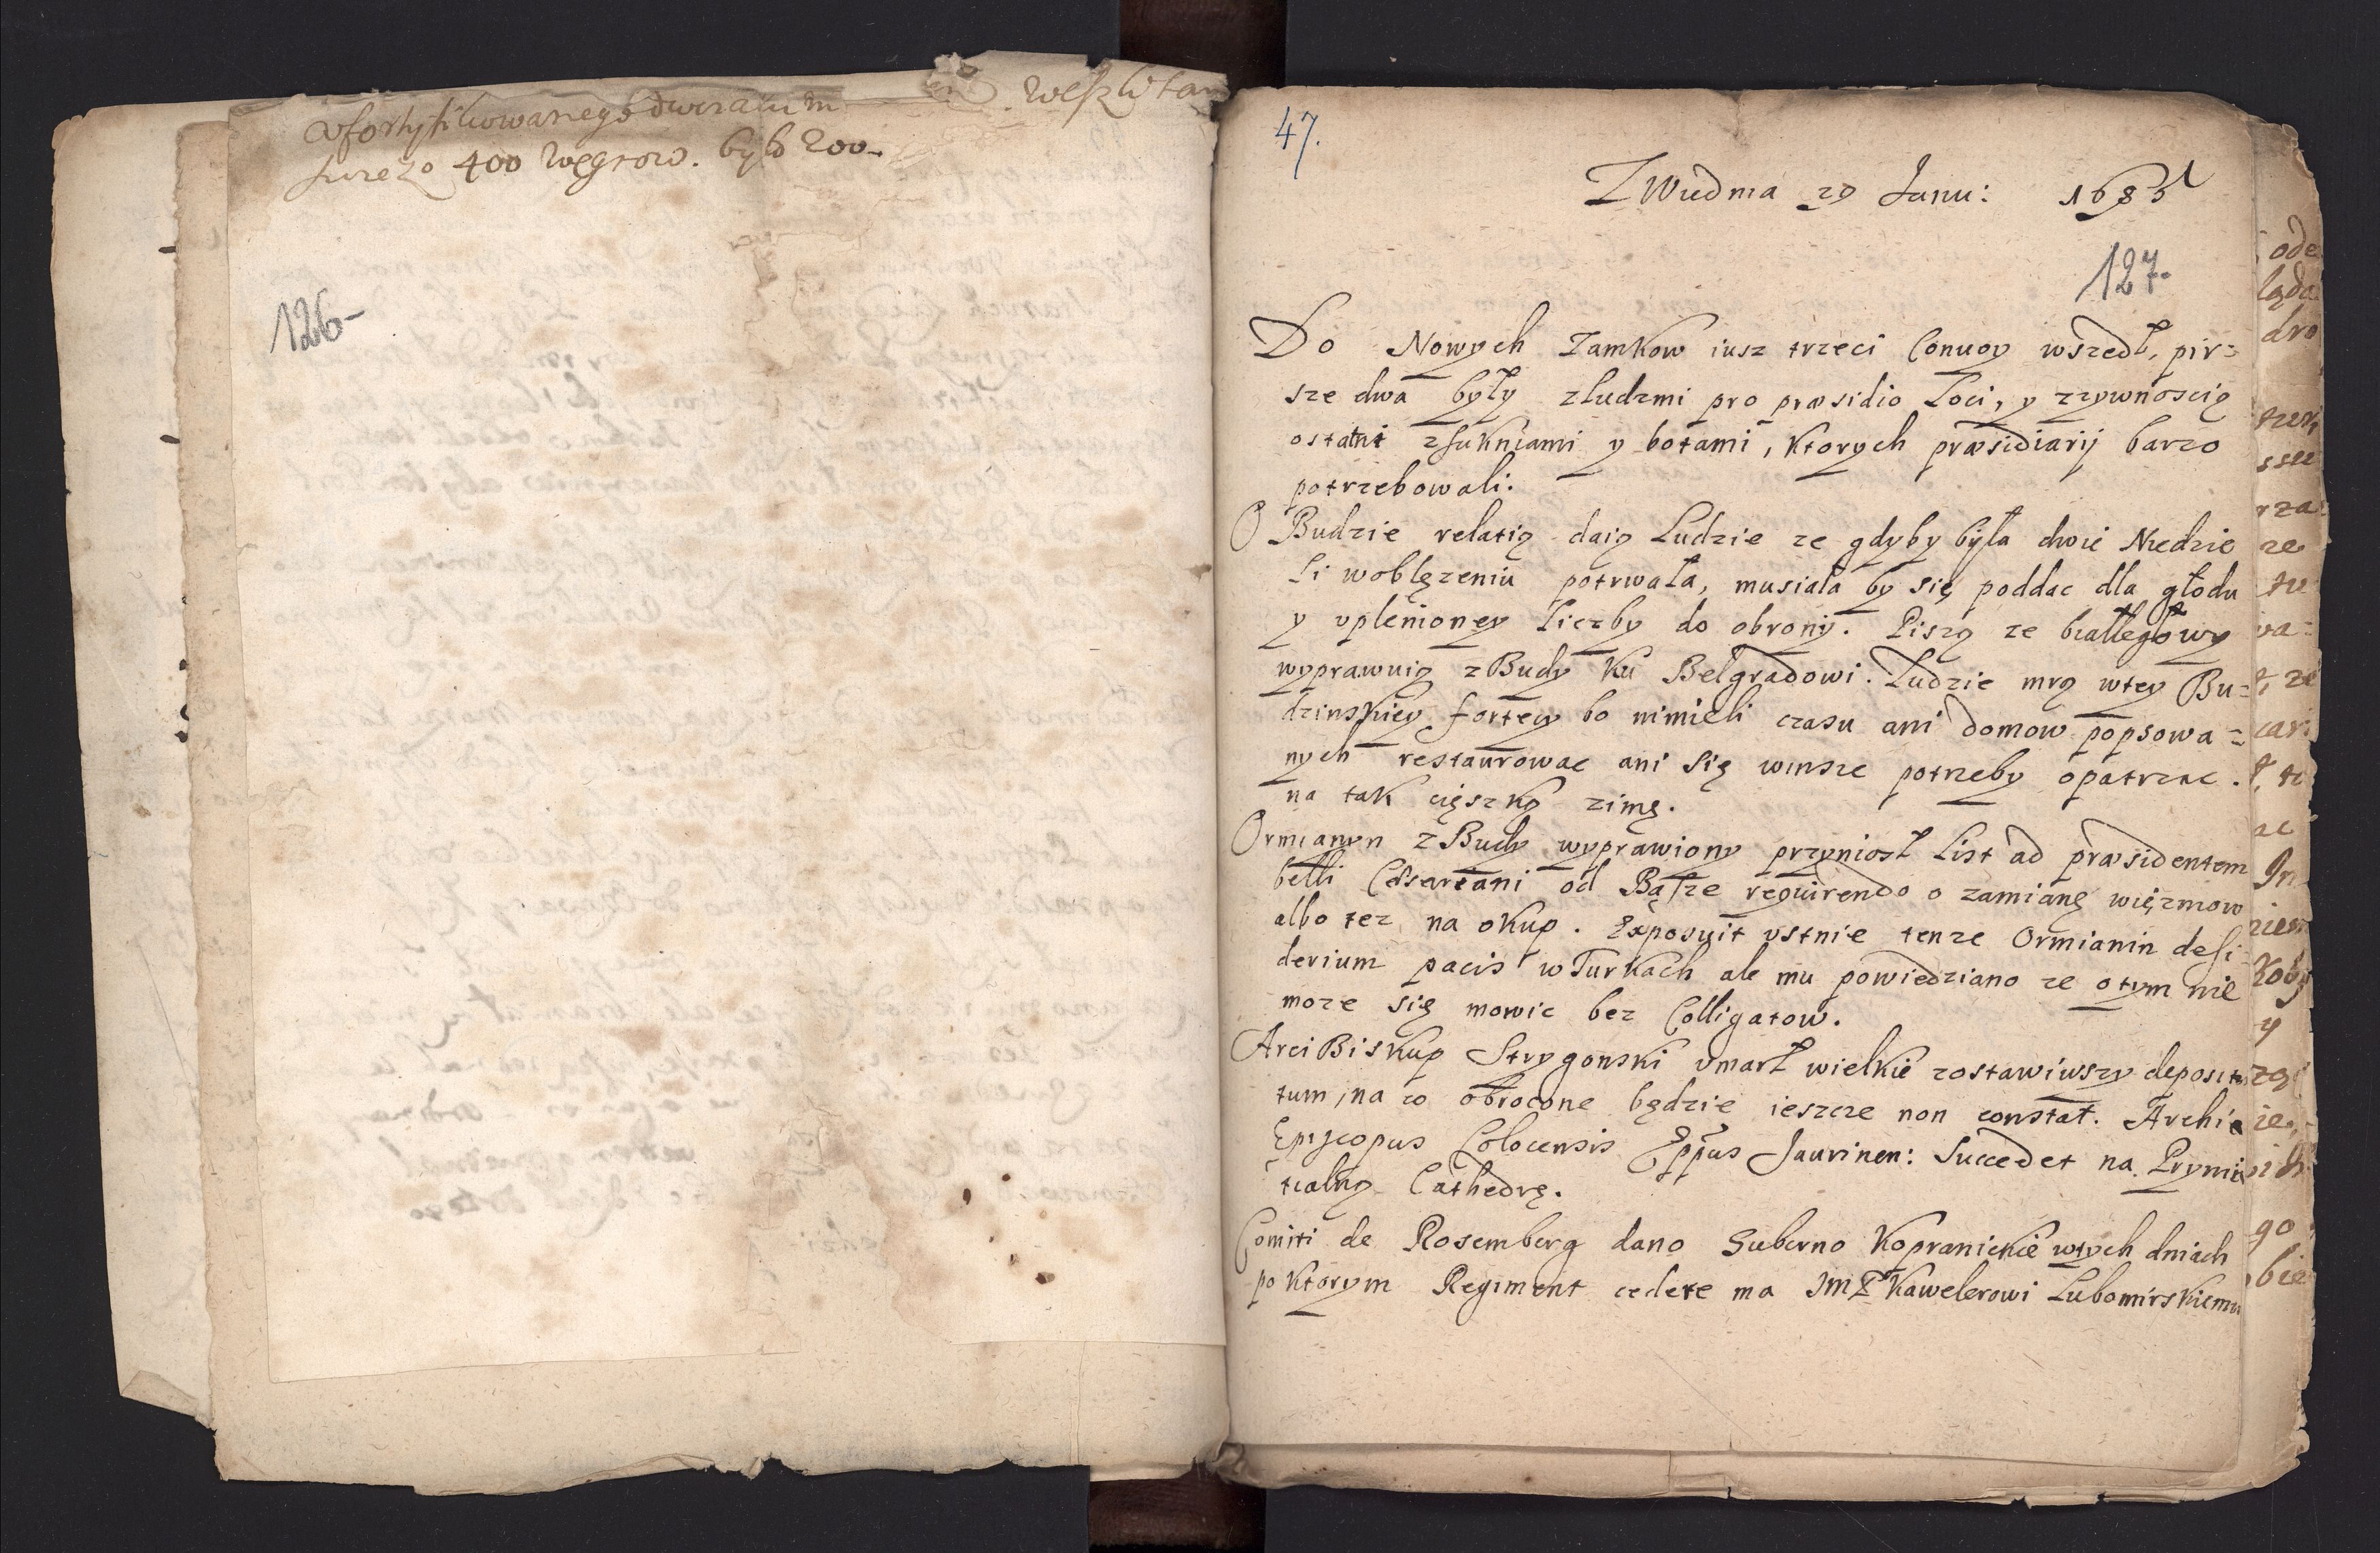 400 Węgrow. było 200
126-
47.
Z Wiednia 29 Janu: 1685
127.
Do Nowych Zamkow iusz trzeci Convoy wszedł, pir=
sze dwa były z ludzmi pro præsidio Loci, y zzywnoscią
ostatni z suKniami y botami, Ktorych præsidiarij barzo
potrzebowali.
O Budzie relatią daią Ludzie ze gdyby była dwie Niedzie
li w oblęzeniu potrwała, musiała by się poddac dla głodu
y uplenioney liczby do obrony. Piszą ze białłegłowy
wyprawuią z Budy Ku Belgradowi. Ludzie mrą w tey Bu=
dzinsKiey fortey bo nimieli czasu ani domow popsowa=
nych restaurowac ani się w insze potrzeby opatrzac.
na taK cięszKą zimę.
Ormianyn z Budy wyprawiony przyniosł List ad præsidentem
belli Cæsareani od Basze requirendo o zamianę więzniow
albo tez na oKup. Exposuit ustnie tenze Ormianin desi
derium pacis w TurKach ale mu powiedziano ze o tym nie
moze się mowic bez Colligatow.
Arci BisKup Strygonski umarł wielKie zostawiwszy deposi
tum, na co obrocone będzie ieszcze non constat. Archi
Episcopus Colocensis Eppus Jaurinen: Succedet na Prymi
tialną Cathedrę.
Comiti de Rosemberg dano Guberno KopranicKie w tych dniach
po Ktorym Regiment cedere ma JmP Kawelerowi LubomirsKiemu